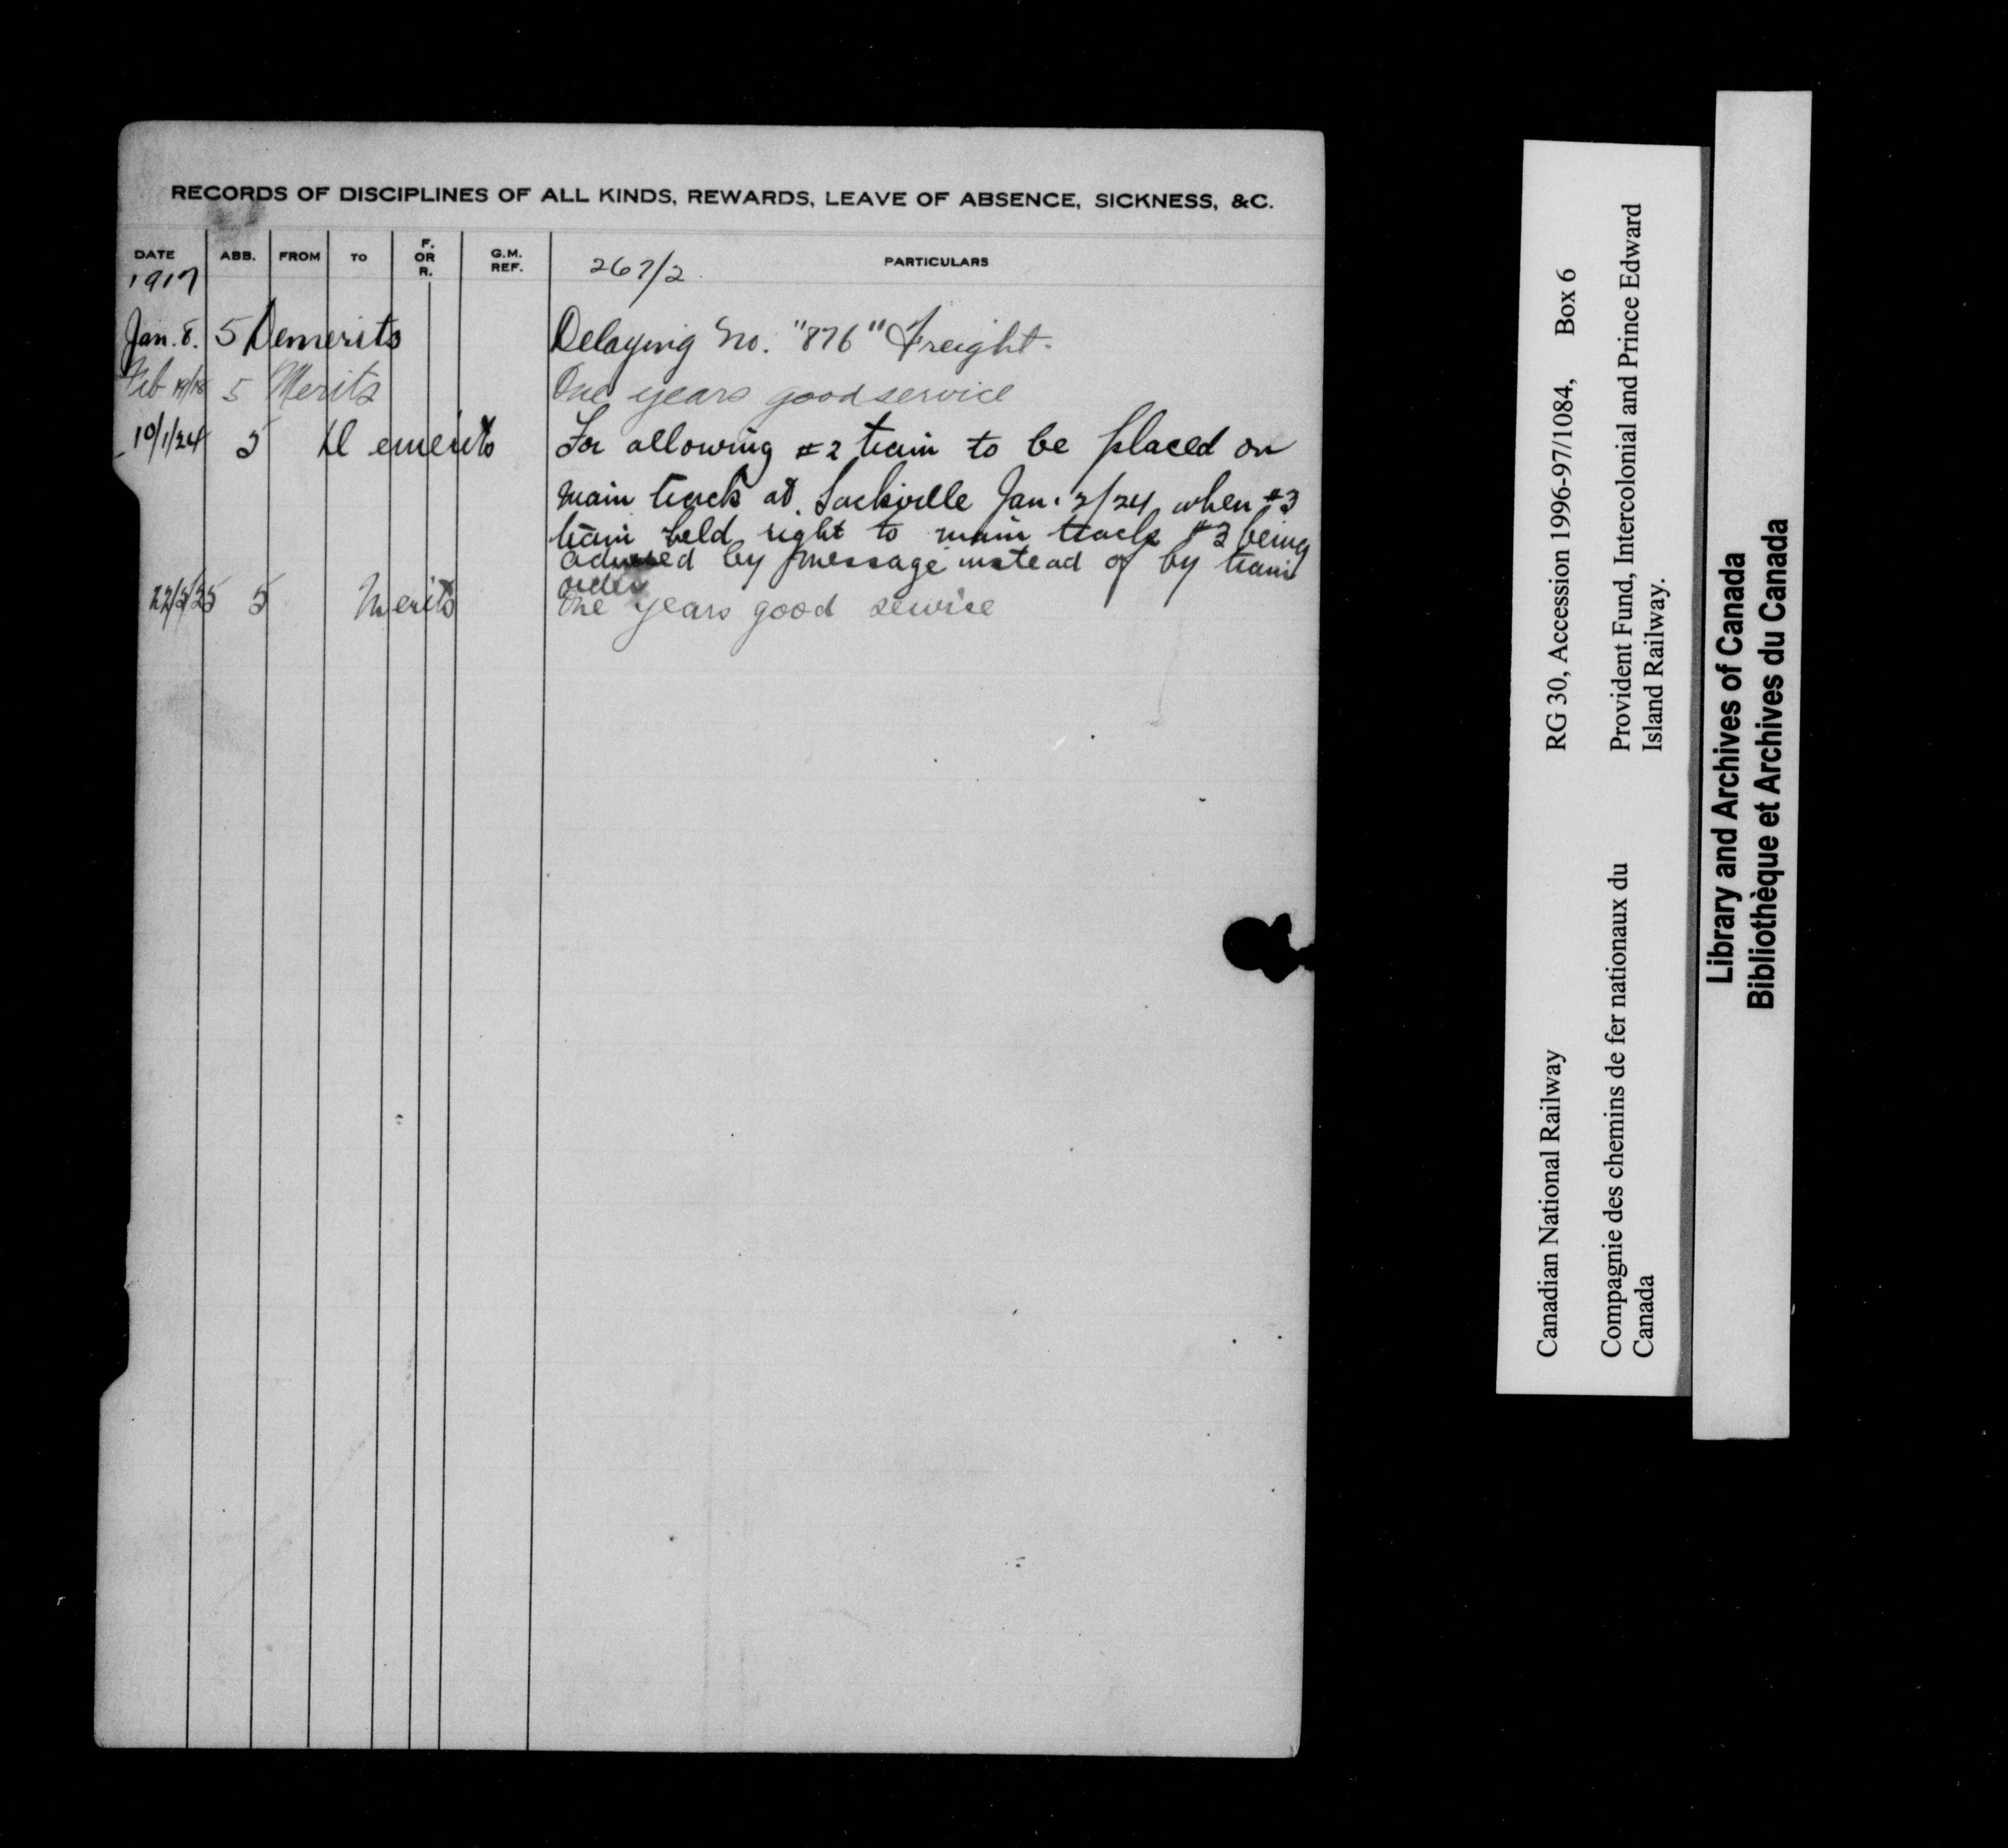 RECORDS OF DISCIPLINES OF ALL KINDS, REWARDS, LEAVE OF ABSENCE, SICKNESS, &C.
DATE ABB. FROM TO F. OR R. G.M. REF. PARTICULARS
1917 267/2
Jan. 8. 5 Demerits Delaying No. "876" Freight.
Feb 19/18 5 Merits One years good service
10/1/24 5 Demerits For allowing #2 train to be placed on
main track at Sackville Jan. 2/24 when #3
train held right to main track #3 being
advised by message instead of by train
order
22/5/25 5 Merits One years good service
Canadian National Railway RG 30, Accession 1996-97/1084, Box 6
Compagnie des chemins de fer nationaux du Canada
Provident Fund, Intercolonial and Prince Edward Island Railway.
Library and Archives of Canada
Bibliothèque et Archives du Canada